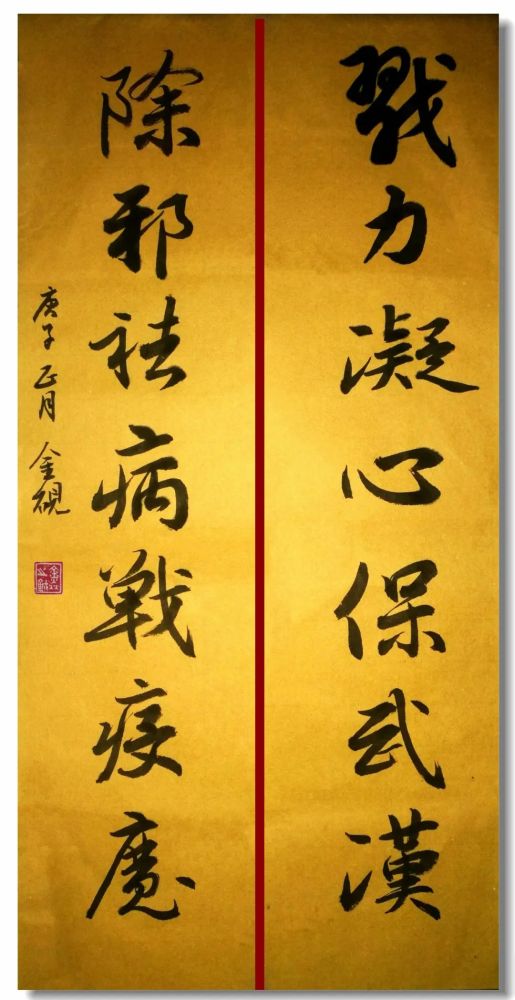 戮力凝心保武漢
除邪祛病戰疫魔
庚子正月 金硯